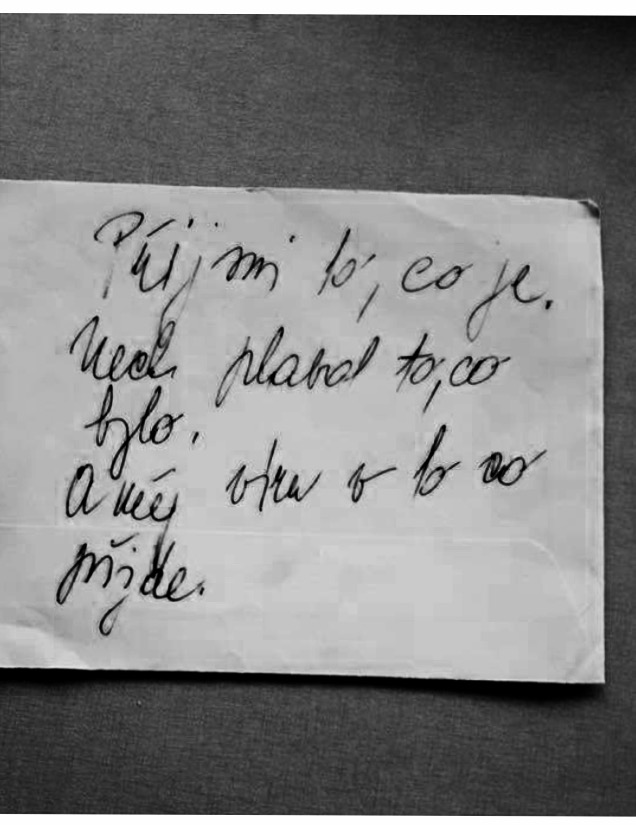 Přijmi to, co je.
Nech plavat to, co
bylo.
A měj víru v to co
přijde.